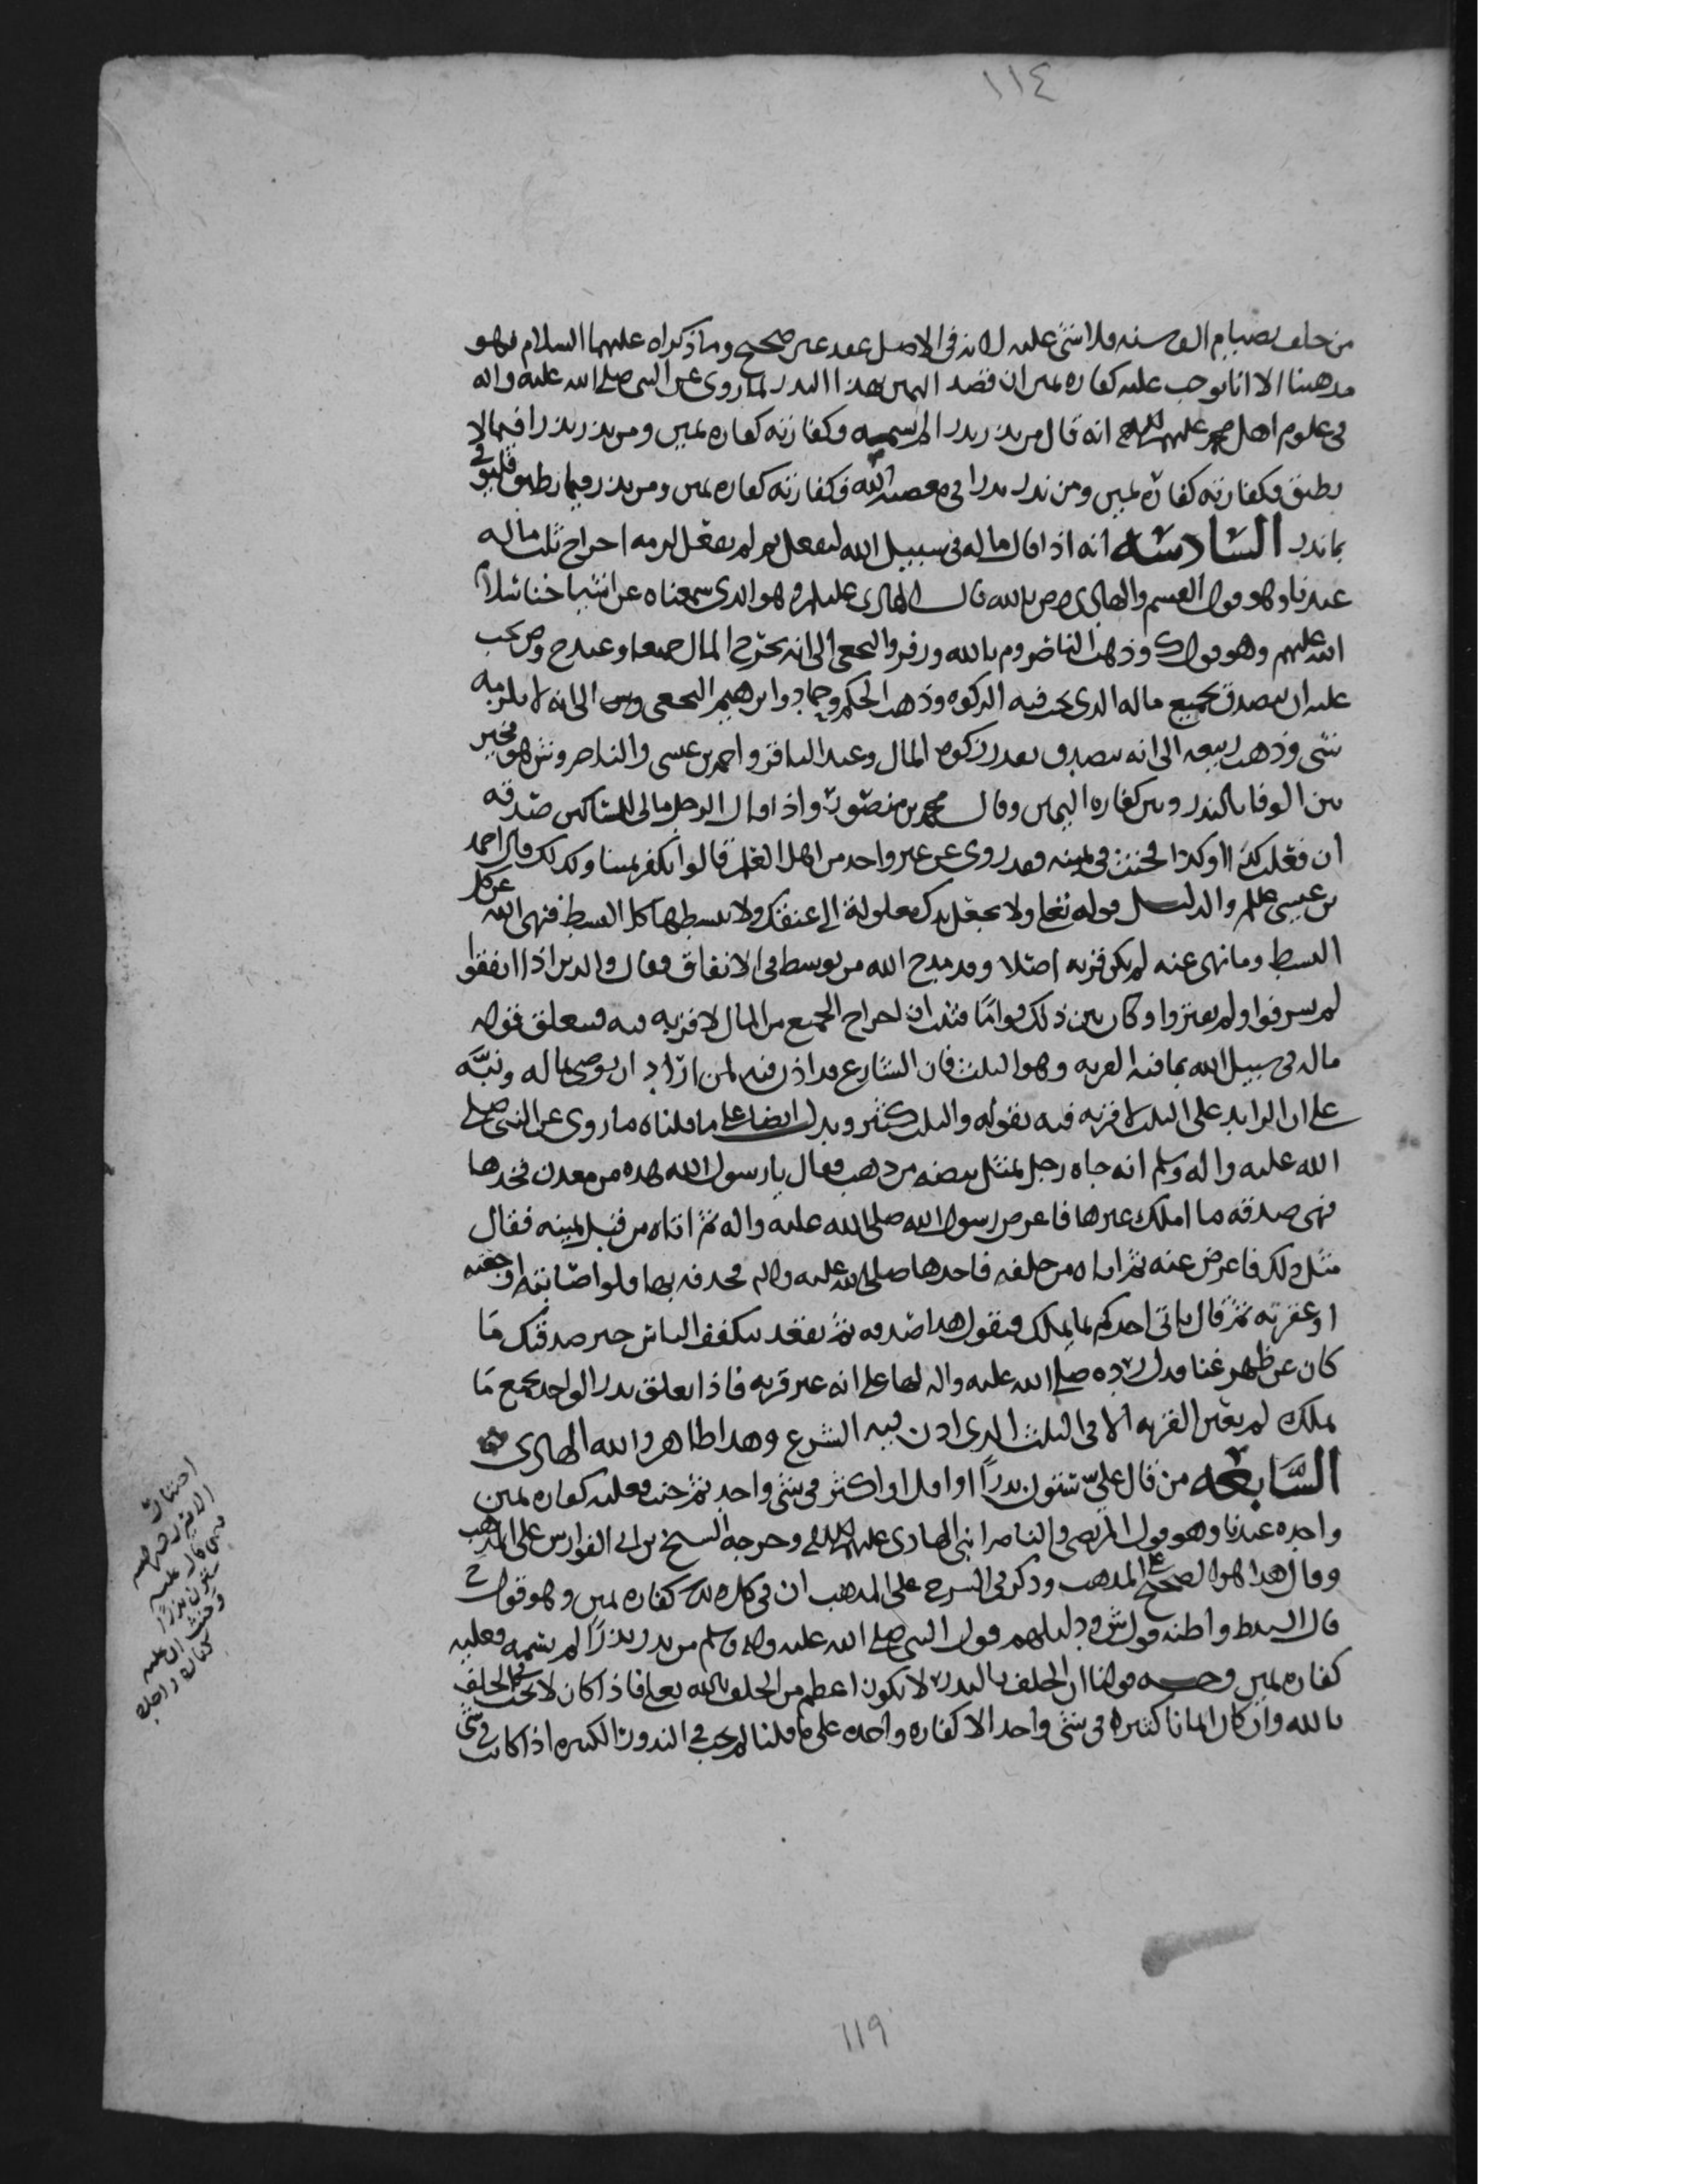 ١١٤
من حلف بصيام الف سنه فلا شي عليه لانه في الاصل عقد غير صحيح وما ذكراه عليهما السلام فهو
مذهبنا الا انا نوجب عليه كفاره يمين ان قصد اليمين بهذا النذر لما روي عن النبي صلى الله عليه واله
في علوم ال محمد عليهم السلام انه قال من نذر نذرا لم يسميه فكفارته كفاره يمين ومن نذر نذرا فيما لا
يطيق فكفارته كفارة يمين ومن نذر نذرا في معصية الله فكفارته كفاره يمين ومن نذر فيما يطيق فليوف
بما نذر السَّادسَه انه اذا قال ماله في سبيل الله ليفعل ثم لم يفعل لزمه اخراج ثلث ماله
عندنا وهو قول القسم والهادي وص بالله قال الهادي عليلم وهو الذي سمعناه عن اشياخنا سلام
الله عليهم وهو قول ك وذهب الناصر وم بالله وزفر والنخعي الى انه يخرج المال جميعا وعند ح وص يجب
عليه ان يتصدق بجميع ماله الذي تجب فيه الزكوه وذهب الحكم وحماد وابرهيم النخعي الى انه لا يلزمه
شي وذهب ربيعه الى انه يتصدق بقدر زكوه المال وعند الباقر واحمد بن عيسى والناصر وش هو مخير
بين الوفا بالنذر وبين كفاره اليمين وقال محمد بن منصور واذا قال الرجل مالي للمساكين صدقه
ان فعلت كذا او كذا فحنث في يمينه فقد روي عن غير واحد من اهل العلم قالوا يكفر يمينا وكذلك قال احمد
بن عيسى عللم والدليل قوله تعلى ولا تجعل يدك مغلولة الى عنقك ولا تبسطها كل البسط فنهى الله عن كل
البسط وما نهى عنه لم يكن قربه اصلا وقد مدح الله من توسط في الانفاق فقال والذين اذا انفقوا
لم يسرفوا ولم يقتروا وكان بين ذلك قوامًا فثبت ان اخراج الجميع من المال لا قربه فيه فيتعلق قوله
ماله في سبيل الله بما فيه القربه وهو الثلث فان الشارع قد اذن فيه لمن اراد ان يوصي بماله ونبَّه
على ان الزايد على الثلث لا قربه فيه بقوله والثلث كثير ويدل ايضا على ما قلناه ما روي عن النبي صلى
الله عليه واله وسلم انه جاه رجل بمثل بيضه من ذهب فقال يا رسول الله هذه من معدن فخذها
فهي صدقه ما املك غيرها فاعرض رسول الله صلى الله عليه واله ثم اتاه من قبل يمينه فقال
مثل ذلك فاعرض عنه ثم اتاه من خلفه فاخذها صلى الله عليه واله فحذفه بها فلو اصابته اوجعته
او عقرته ثم قال ياتي احدكم بما يملك فيقول هذا صدقه ثم يقعد يتكفف الناس خير صدقتك مَا
كان عن ظهر غنا فدل رده صلى الله عليه واله لها على انه غير قربه فاذا تعلق نذر الواحد بجميع مَا
يملك لم يتعين القربه الا في الثلث الذي اذن فيه الشرع وهذا ظاهر والله الهادي
السَّابعَه من قال عليّ ستون نذرًا او اقل او اكثر في شي واحد ثم حنث فعليه كفاره يمين
واحده عندنا وهو قول المرتضى والناصر ابني الهادي عليهم السلام وخرجه الشيخ بن ابي الفوارس على المذهب
وقال هذا هو الصحيح على المذهب وذكر في الشرح على المذهب ان في كل نذر كفاره يمين وهو قول ح
قال السيد ط واظنه قول ش ودليلهم قول النبي صلى الله عليه واله وسلم من نذر نذرًا لم يسمه فعليه
كفاره يمين وجه قولنا ان الحلف بالنذر لا يكون اعظم من الحلف بالله تعلى فاذا كان لا يجب في الحلف
بالله وان كان ايمانا كثيره في شي واحد الا كفاره واحده على ما قلنا لم يجب في النذور الكثيره اذا كانت في شي
ستون نذرًا
كفاره واحده
١١٩